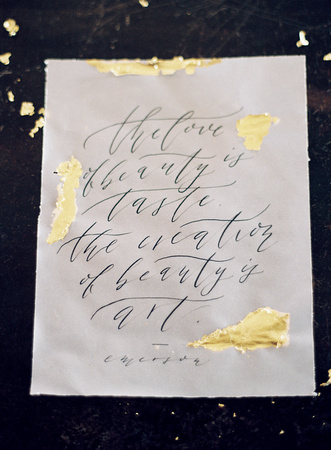 the love
of beauty is
taste.
the creation
of beauty is
art.
—
emerson